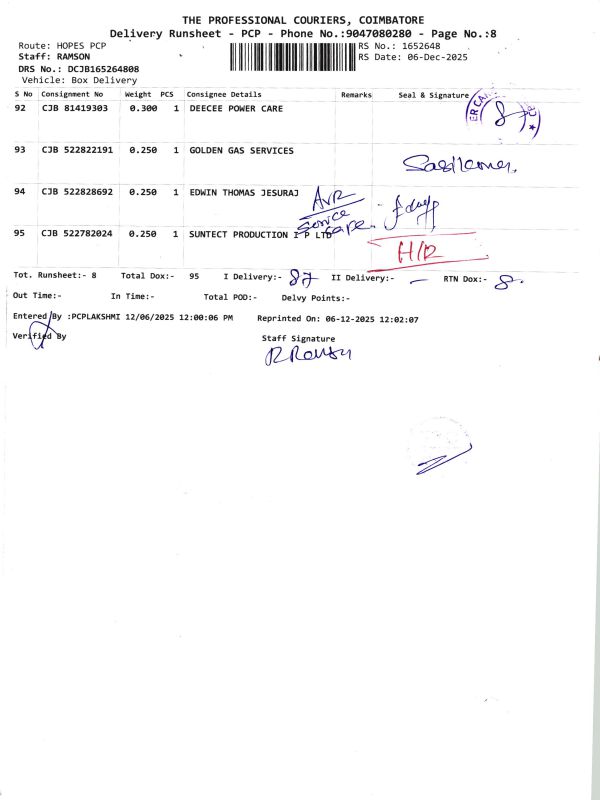 THE PROFESSIONAL COURIERS, COIMBATORE
Delivery Runsheet - PCP - Phone No.:9047080280 - Page No.:8
Route: HOPES PCP
RS No.: 1652648
Staff: RAMSON
RS Date: 06-Dec-2025
DRS No.: DCJB165264808
Vehicle: Box Delivery
S No Consignment No Weight PCS Consignee Details Remarks Seal & Signature
92 CJB 81419303 0.300 1 DEECEE POWER CARE
ER CA
93 CJB 522822191 0.250 1 GOLDEN GAS SERVICES
94 CJB 522828692 0.250 1 EDWIN THOMAS JESURAJ
AVR
Service
95 CJB 522782024 0.250 1 SUNTECT PRODUCTION I P LTD
H/R
Tot. Runsheet:- 8 Total Dox:- 95 I Delivery:- 87 II Delivery:- — RTN Dox:- 8
Out Time:- In Time:- Total POD:- Delvy Points:-
Entered By :PCPLAKSHMI 12/06/2025 12:00:06 PM Reprinted On: 06-12-2025 12:02:07
Verified By
Staff Signature